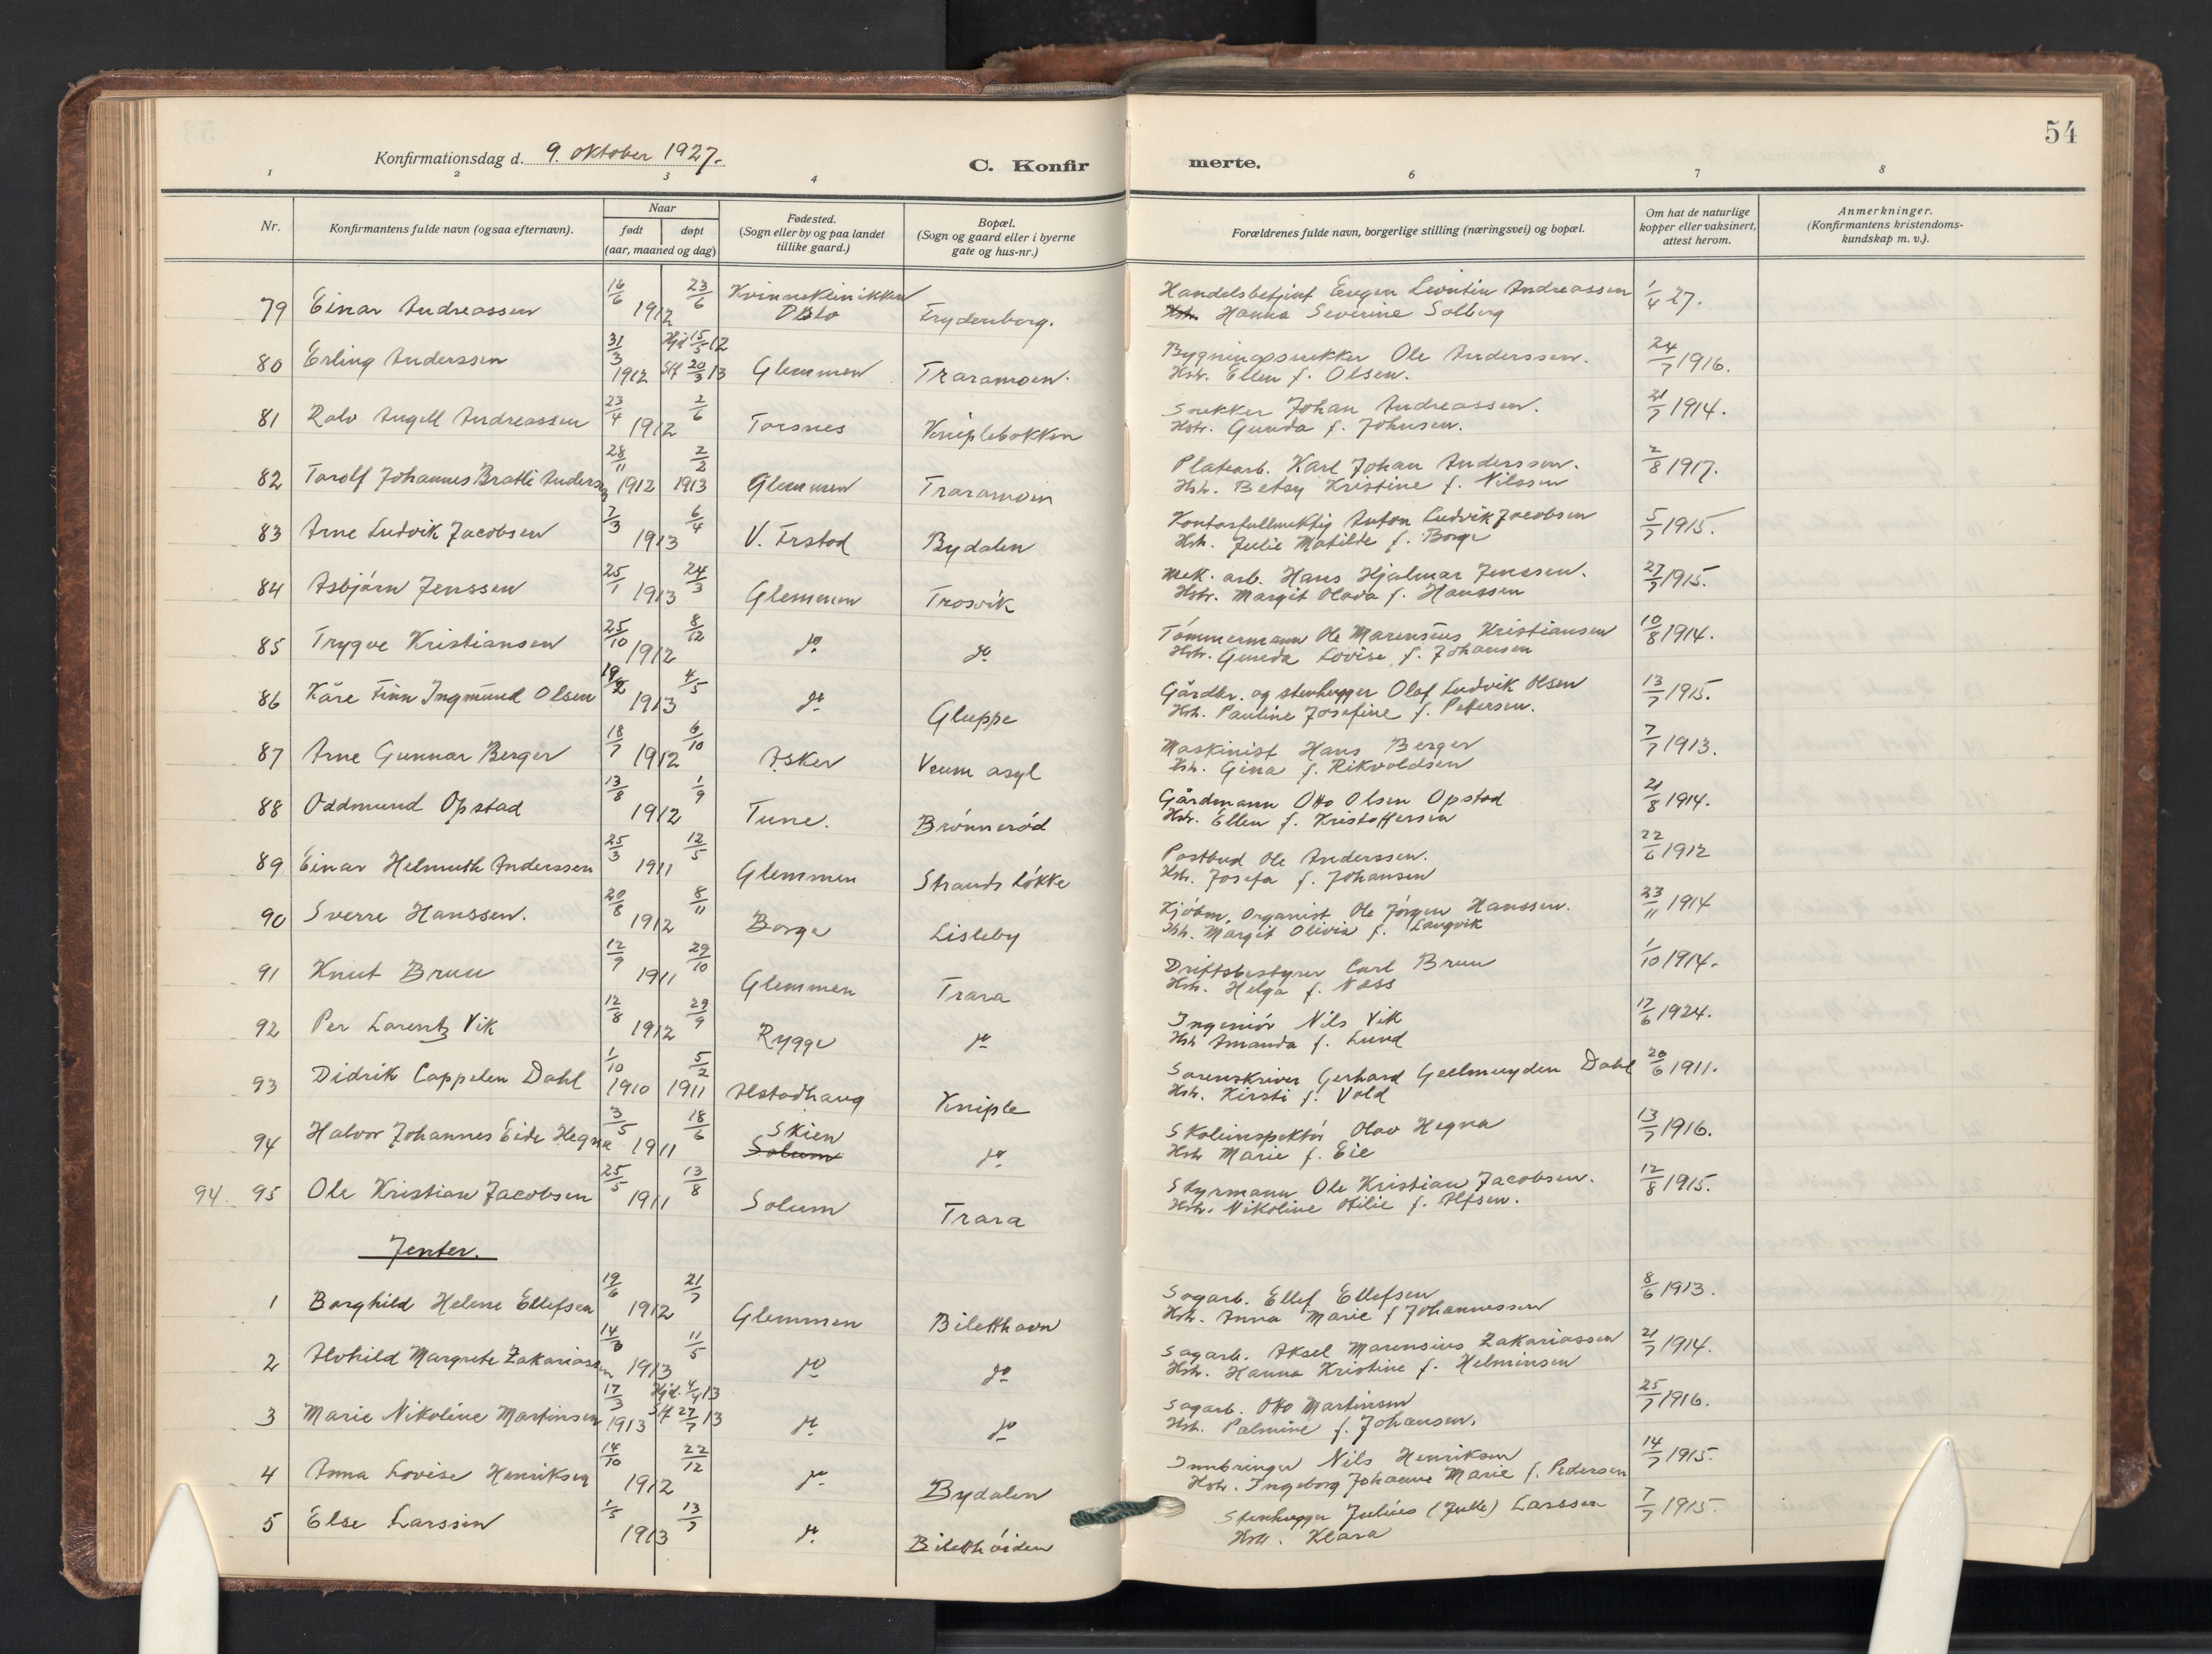 54
Konfirmationsdag d. 9. oktober 1927.
C. Konfirmerte.
1 2 3 4 6 7 8
Nr.
Konfirmantens fulde navn (ogsaa efternavn).
Naar
født døpt
(aar, maaned og dag)
Fødested.
(Sogn eller by og paa landet
tillike gaard.)
Bopæl.
(Sogn og gaard eller i byerne
gate og hus-nr.)
Forældrenes fulde navn, borgerlige stilling (næringsvei) og bopæl.
Om hat de naturlige
kopper eller vaksinert,
attest herom.
Anmerkninger.
(Konfirmantens kristendoms-
kundskap m. v.).
79 Einar Andreassen 16/6 1912 23/6 Kvinneklinikken Oslo Frydenberg. Handelsbetjent Eugen Andreassen 1/4 27.
Hanna Severine Solberg
80 Erling Anderssen 31/3 1912 Hjd 15/5 12 Stf 20/3 13 Glemmen Traramoen. Bygningssnekker Ole Anderssen. 24/7 1916.
Hstr. Ellen f. Olsen.
81 Rolv Angell Andreassen 23/4 1912 2/6 Torsnes Kniplebakken Snekker Johan Andreassen. 21/7 1914.
Hstr. Gunda f. Johnsen.
82 Torolf Johannes Bratli Anderssen 28/11 1912 2/2 1913 Glemmen Traramoen Platearb. Karl Johan Anderssen. 2/8 1917.
Hstr. Betsy Kristine f. Nilssen
83 Arne Ludvik Jacobsen 7/3 1913 6/4 V. Frstad Bydalen Kontorfullmektig Anton Ludvik Jacobsen 5/7 1915.
Hstr. Julie Matilde f. Borge
84 Asbjörn Jenssen 25/1 1913 24/3 Glemmen Trosvik Mek. arb. Hans Hjalmar Jenssen. 27/7 1915.
Hstr. Margit Olava f. Hanssen
85 Trygve Kristiansen 25/10 1912 8/12 do do Tömmermann Ole Marensius Kristiansen 10/8 1914.
Hstr. Gunda Lovise f. Johansen
86 Kåre Finn Ingmund Olsen 19/2 1913 4/5 do Gluppe Gårdbr. og stenhugger Olaf Ludvik Olsen 13/7 1915.
Hstr. Pauline Josefine f. Petersen.
87 Arne Gunnar Berger 18/7 1912 6/10 Asker Veum asyl Maskinist Hans Berger 7/7 1913.
Hstr. Gina f. Rikvoldsen
88 Oddmund Opstad 13/8 1912 1/9 Tune. Brönneröd Gårdmann Otto Olsen Opstad 21/8 1914.
Hstr. Ellen f. Kristoffersen
89 Einar Helmuth Anderssen 25/3 1911 12/5 Glemmen Strands lökke Postbud Ole Anderssen. 22/6 1912
Hstr. Josefa f. Johansen
90 Sverre Hanssen. 20/8 1912 8/11 Borge Lisleby Kjöbm. Organist Ole Jörgen Hanssen. 23/11 1914
Hstr. Margit Olivia f. Langvik
91 Knut Bruu 12/9 1911 29/10 Glemmen Trara Driftsbestyrer Carl Bruu 1/10 1914.
Hstr. Helga f. Næss
92 Per Larentz Vik 12/8 1912 29/9 Rygge do Ingeniör Nils Vik 17/6 1924.
Hstr Amanda f. Lund
93 Didrik Cappelen Dahl 1/10 1910 5/2 1911 Alstadhaug Kniple Sorenskriver Gerhard Geelmuyden Dahl 20/6 1911.
Hstr. Kirsti f. Vold
94 Halvor Johannes Eide Hegna 3/5 1911 18/6 Skien Solum do Skoleinspektör Olav Hegna 13/7 1916.
Hstr Marie f. Eie
94. 95 Ole Kristian Jacobsen 25/5 1911 13/8 Solum Trara Styrmann Ole Kristian Jacobsen. 12/8 1915.
Hstr. Nikoline Otilie f. Alfsen.
Jenter.
1 Borghild Helene Ellefsen 19/6 1912 21/7 Glemmen Biletthavn Sagarb. Ellef Ellefsen 8/6 1913.
Hstr. Anna Marie f Johannessen
2 Alvhild Margrete Zakariassen 14/3 1913 11/5 do do Sagarb. Aksel Marensius Zakariassen 21/7 1914.
Hstr. Hanna Kristine f. Helminsen
3 Marie Nikoline Martinsen 17/3 1913 Hjd. 4/4 13 Stf 27/7 13 do do Sagarb. Otto Martinsen 25/7 1916.
Hstr. Palmine f. Johansen.
4 Anna Lovise Henriksen 14/10 1912 22/12 do Bydalen Innbringer Nils Henriksen 14/7 1915.
Hstr. Ingeborg Johanne Marie f. Pedersen
5 Else Larssen 1/5 1913 13/7 do Biletthöiden Stenhugger Julius (Julle) Larssen 7/7 1915.
Hstr. Klara